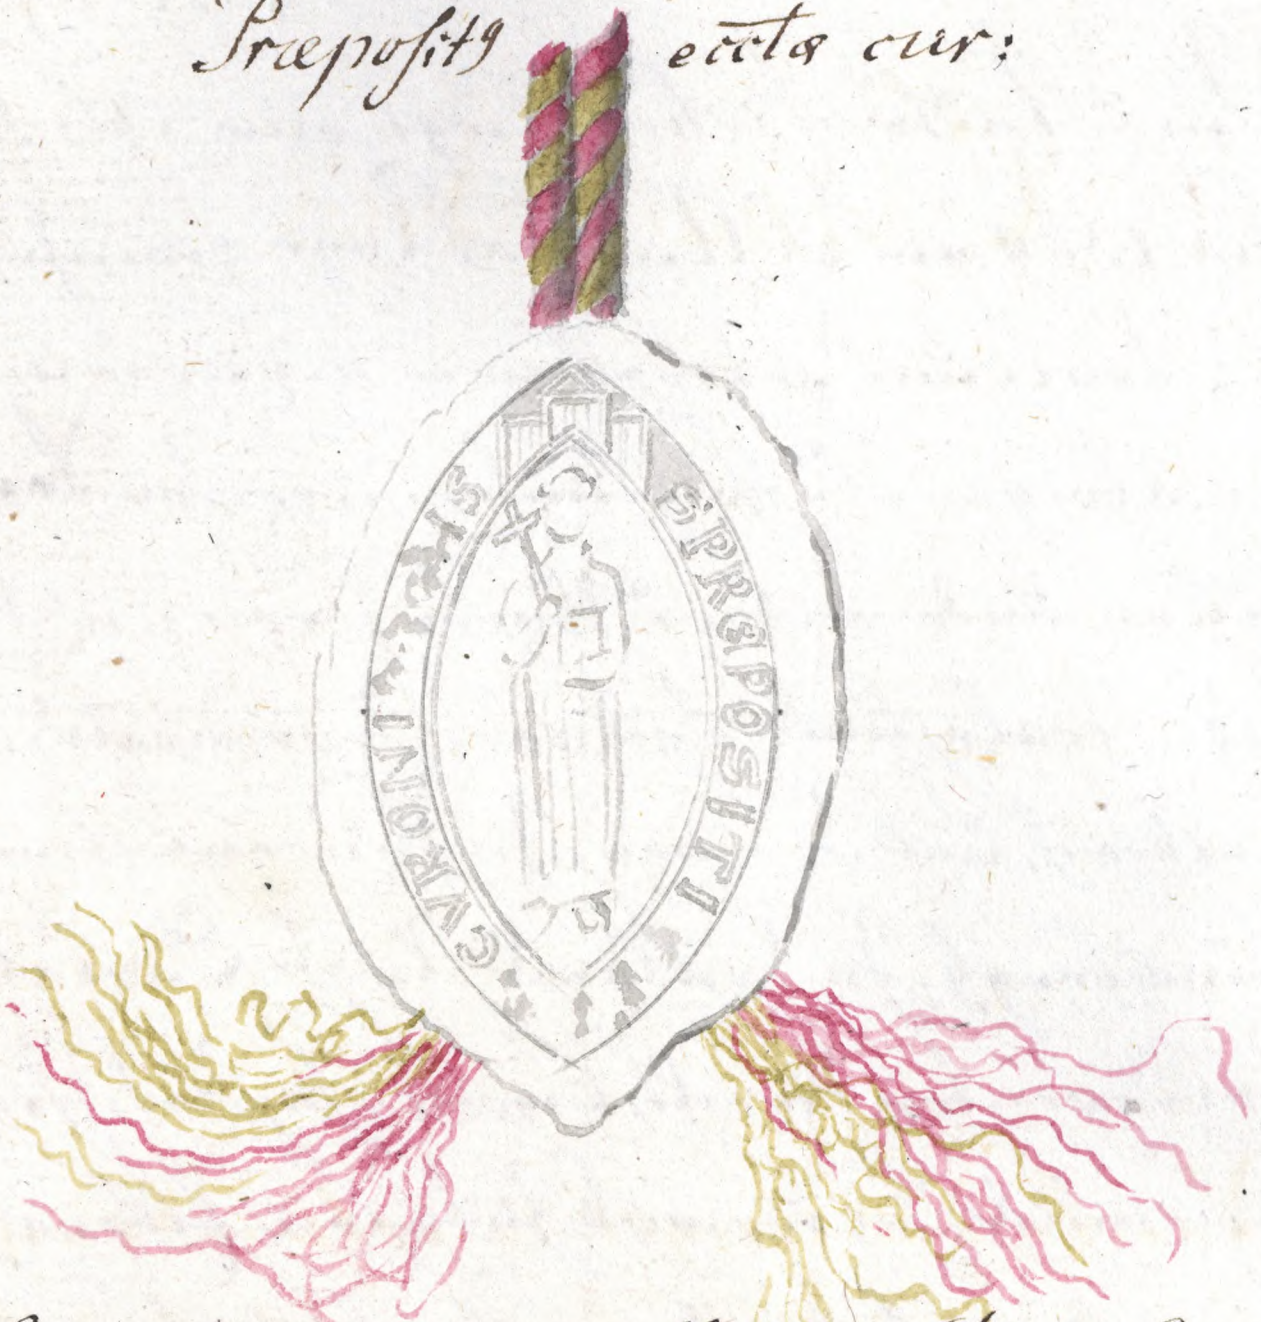 Præpositꝯ eccłæ cur:
S PREPOSITI CVRONI IS